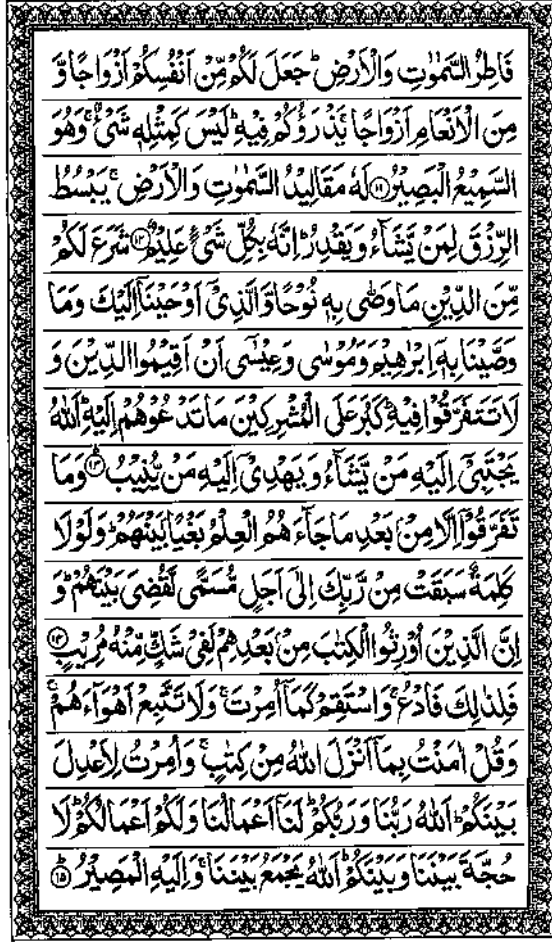 فَاطِرُ السَّمٰوٰتِ وَالْاَرْضِ ؕ جَعَلَ لَكُمْ مِّنْ اَنْفُسِكُمْ اَزْوَاجًا وَّ
مِنَ الْاَنْعَامِ اَزْوَاجًا ۚ يَذْرَؤُكُمْ فِيْهِ ؕ لَيْسَ كَمِثْلِهٖ شَيْءٌ ۚ وَهُوَ
السَّمِيْعُ الْبَصِيْرُ ﴿۱۱﴾ لَهٗ مَقَالِيْدُ السَّمٰوٰتِ وَالْاَرْضِ ۚ يَبْسُطُ
الرِّزْقَ لِمَنْ يَّشَآءُ وَيَقْدِرُ ؕ اِنَّهٗ بِكُلِّ شَيْءٍ عَلِيْمٌ ﴿۱۲﴾ شَرَعَ لَكُمْ
مِّنَ الدِّيْنِ مَا وَصّٰى بِهٖ نُوْحًا وَّالَّذِيْۤ اَوْحَيْنَاۤ اِلَيْكَ وَمَا
وَصَّيْنَا بِهٖۤ اِبْرٰهِيْمَ وَمُوْسٰى وَعِيْسٰۤى اَنْ اَقِيْمُوا الدِّيْنَ وَ
لَا تَتَفَرَّقُوْا فِيْهِ ؕ كَبُرَ عَلَى الْمُشْرِكِيْنَ مَا تَدْعُوْهُمْ اِلَيْهِ ؕ اَللّٰهُ
يَجْتَبِيْۤ اِلَيْهِ مَنْ يَّشَآءُ وَيَهْدِيْۤ اِلَيْهِ مَنْ يُّنِيْبُ ﴿۱۳﴾ وَمَا
تَفَرَّقُوْۤا اِلَّا مِنْۢ بَعْدِ مَا جَآءَهُمُ الْعِلْمُ بَغْيًۢا بَيْنَهُمْ ؕ وَلَوْلَا
كَلِمَةٌ سَبَقَتْ مِنْ رَّبِّكَ اِلٰۤى اَجَلٍ مُّسَمًّى لَّقُضِيَ بَيْنَهُمْ ؕ وَ
اِنَّ الَّذِيْنَ اُوْرِثُوا الْكِتٰبَ مِنْۢ بَعْدِهِمْ لَفِيْ شَكٍّ مِّنْهُ مُرِيْبٍ ﴿۱۴﴾
فَلِذٰلِكَ فَادْعُ ۚ وَاسْتَقِمْ كَمَاۤ اُمِرْتَ ۚ وَلَا تَتَّبِعْ اَهْوَآءَهُمْ ۚ
وَقُلْ اٰمَنْتُ بِمَاۤ اَنْزَلَ اللّٰهُ مِنْ كِتٰبٍ ۚ وَاُمِرْتُ لِاَعْدِلَ
بَيْنَكُمْ ؕ اَللّٰهُ رَبُّنَا وَرَبُّكُمْ ؕ لَنَاۤ اَعْمَالُنَا وَلَكُمْ اَعْمَالُكُمْ ؕ لَا
حُجَّةَ بَيْنَنَا وَبَيْنَكُمْ ؕ اَللّٰهُ يَجْمَعُ بَيْنَنَا ۚ وَاِلَيْهِ الْمَصِيْرُ ﴿۱۵﴾